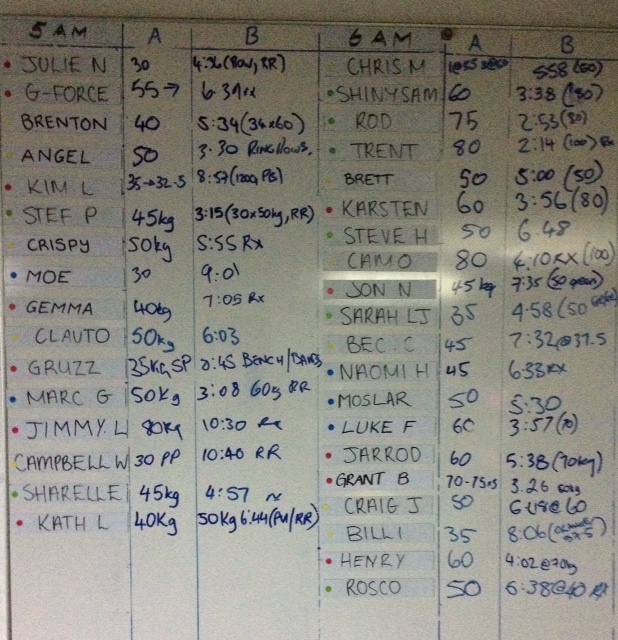 5 AM A B
JULIE N 30 4:36 (80W, RR)
G-FORCE 55 → 6:39 rx
BRENTON 40 5:34 (34x60)
ANGEL 50 3:30 RING ROWS,
KIM L 35→32.5 8:57 (1200, PB)
STEF P 45kg 3:15 (30x50kg, RR)
CRISPY 50kg 5:55 Rx
MOE 30 9:01
GEMMA 40kg 7:05 Rx
CLAUTO 50kg 6:03
GRUZZ 35KG, SP :45 BENCH/
MARC G 50Kg 3:08 60g RR
JIMMY L 80Kg 10:30
CAMPBELL W 30 PP 10:40 RR
SHARELLE 45kg 4:57 rx
KATH L 40Kg 50Kg 6:44 (PU/RR)
6 AM A B
CHRIS M 558 (50)
SHINY SAM 60 3:38 (80)
ROD 75 2:53 (80)
TRENT 80 2:14 (100) Rx
BRETT 50 5:00 (50)
KARSTEN 60 3:56 (80)
STEVE H 50 6.48
CAMO 80 4:10 RX (100)
JON N 45 kg 7:35 (50 green)
SARAH LJ 35 4:58 (50
BEC C 45 7:32@37.5
NAOMI H 45 633 RX
MOSLAR 50 5:30
LUKE F 60 3:57 (70)
JARROD 60 5:38 (70kg)
GRANT B 70-75x5 3.26 60kg
CRAIG J 50 6:18@60
BILLI 35 8:06
HENRY 60 4:02@70kg
ROSCO 50 6:38@40 RX